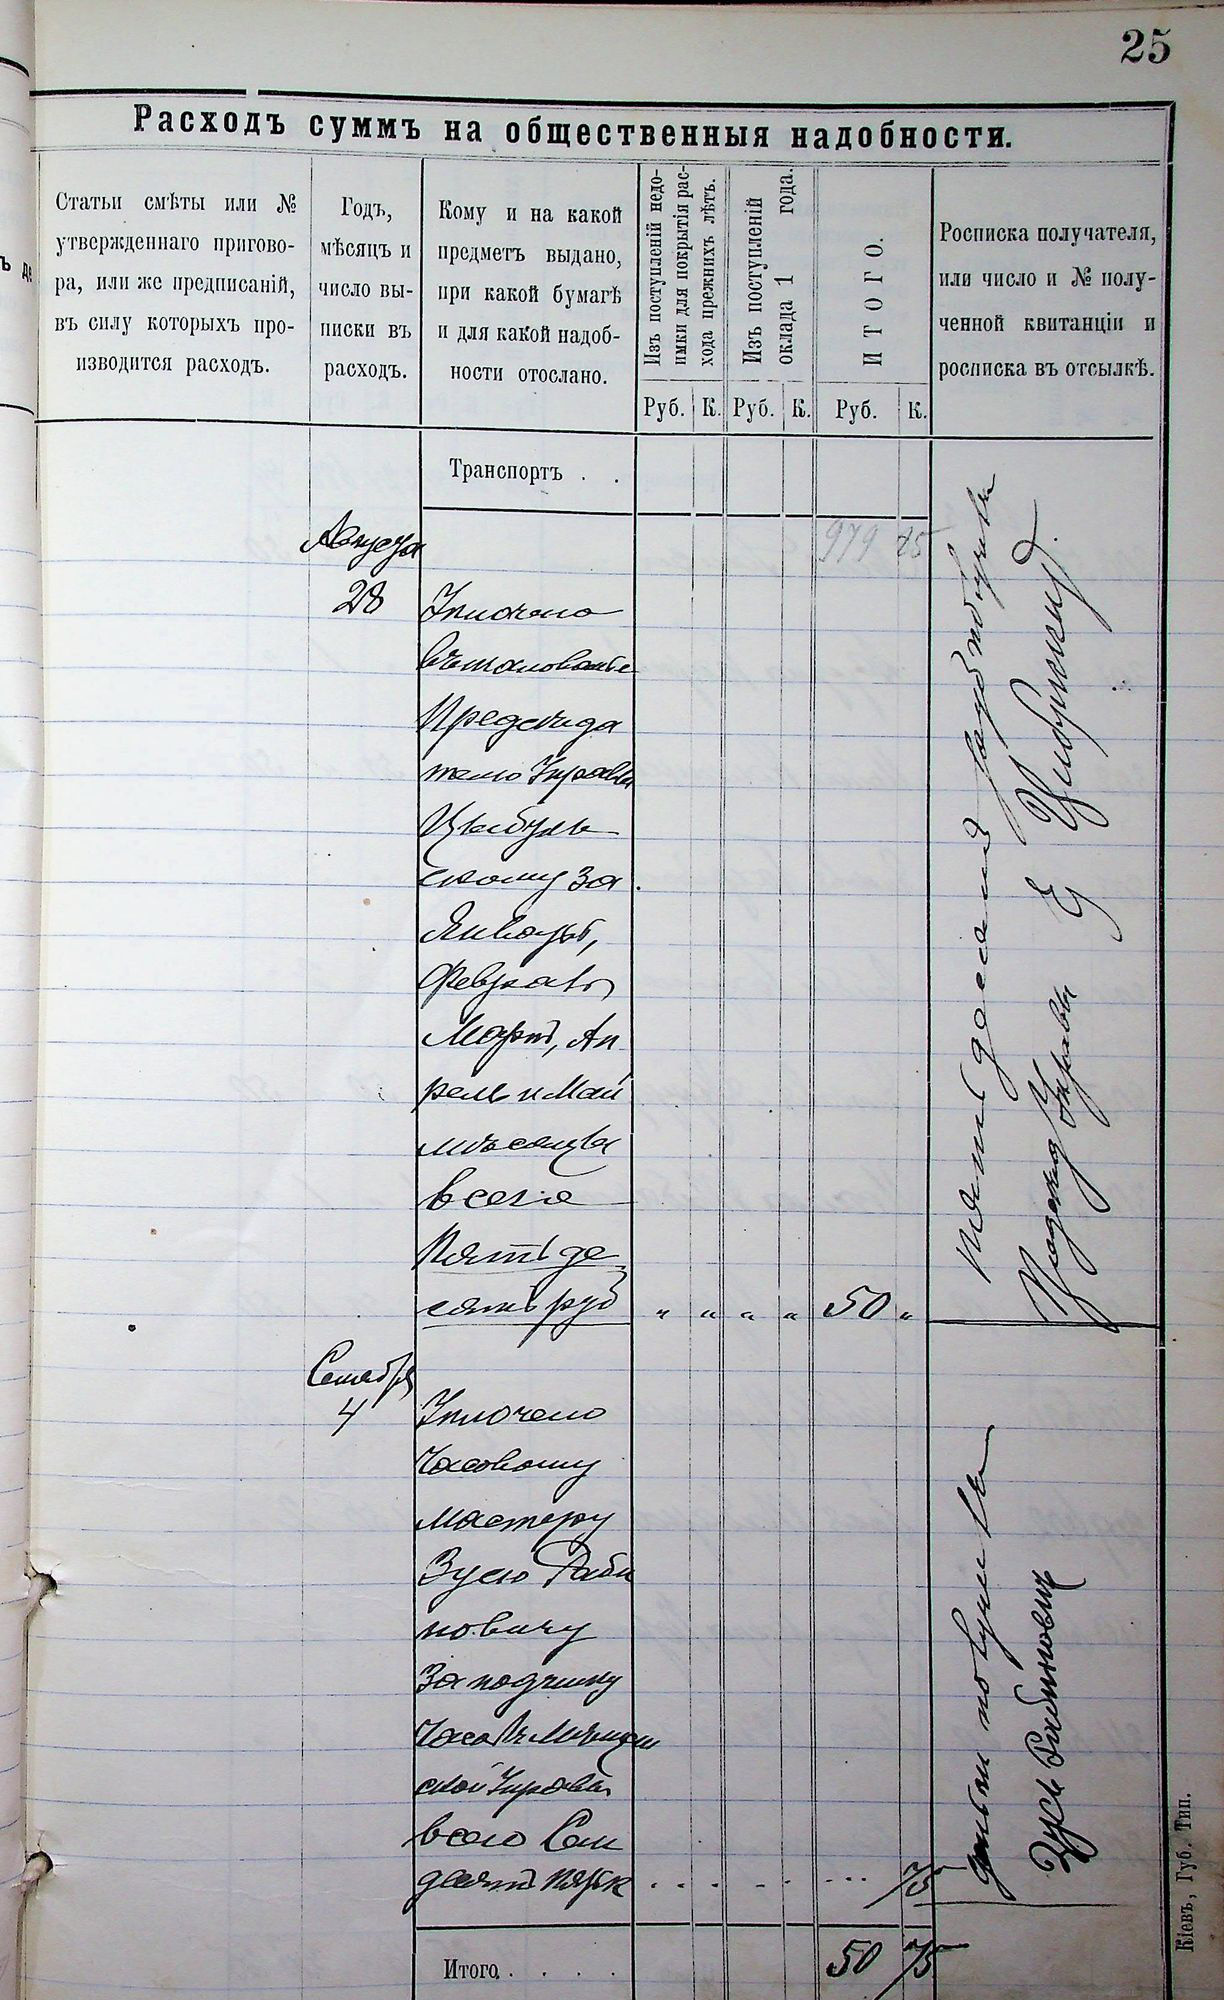 25
Расходъ суммъ на общественныя надобности.
Статьи смѣты или №
утвержденнаго пригово-
ра, или же предписаній,
въ силу которыхъ про-
изводится расходъ.
Годъ,
мѣсяцъ и
число вы-
писки въ
расходъ.
Кому и на какой
предметъ выдано,
при какой бумагѣ
и для какой надоб-
ности отослано.
Изъ поступленій недо-
имки для покрытія рас-
хода прежнихъ лѣтъ.
Изъ поступленій
оклада 1 года.
ИТОГО.
Росписка получателя,
или число и № полу-
ченной квитанціи и
росписка въ отсылкѣ.
Руб. К. Руб. К. Руб. К.
Транспортъ . .
979 25
Августа
28 Уплочено
въжалованье
Председа
телю Управы
Цыбуль
скому за
Январь,
Февраль
Мартъ, Ап
рель и Май
мѣсяцы
всего
Пятьде
сятъ руб " " " " 50 "
Пятьдесятъ руб получилъ
Председ Управы Е Цибульский
Сентября
4 Уплочено
Часовому
мастеру
Зусю Раби
новичу
за подчинку
часовъ Мѣщан
ской Управы
всего Сем
десятъ пять к 75
деньги получилъ
Зусь Рабиновичъ
Итого . . . . 50 75
Кіевъ, Губ. Тип.